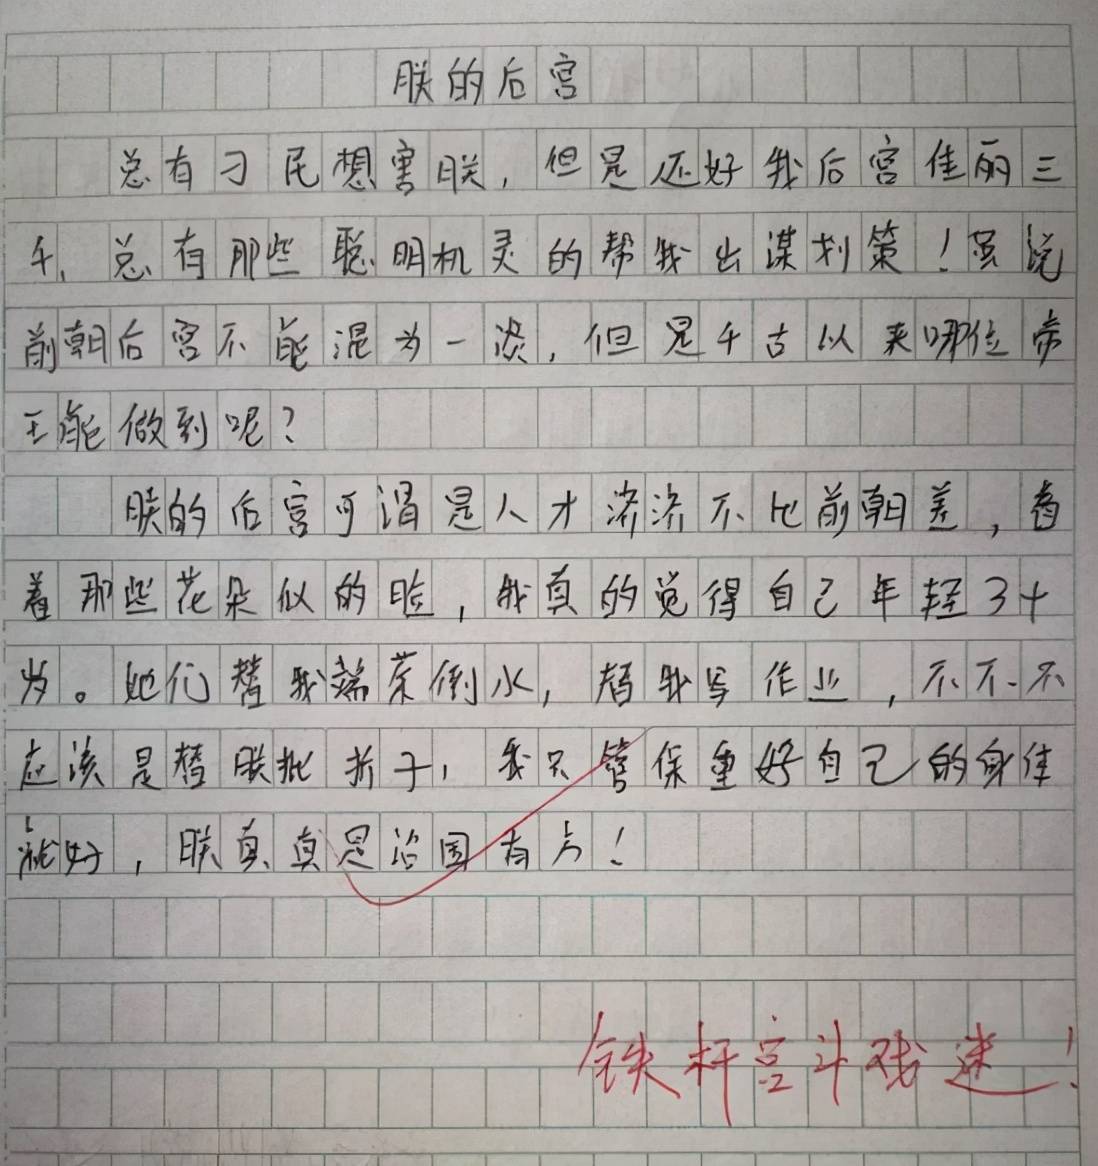 朕的后宫
总有刁民想害朕，但是还好我后宫佳丽三
千、总有那些聪明机灵的帮我出谋划策！虽说
前朝后宫不能混为一谈，但是千古以来哪位帝
王能做到呢？
朕的后宫可谓是人才济济不比前朝差，看
着那些花朵似的脸，我真的觉得自己年轻了十
岁。她们替我端茶倒水，替我写作业，不不、不
应该是替朕批折子，我只管保重好自己的身体
就好，朕真真是治国有方！
铁杆宫斗戏迷！